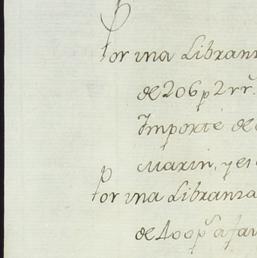 Por una Libran
de 206 p 2 rr.
Importe de
Marin, y es
Por una Libranza
de 400 p.s a fav